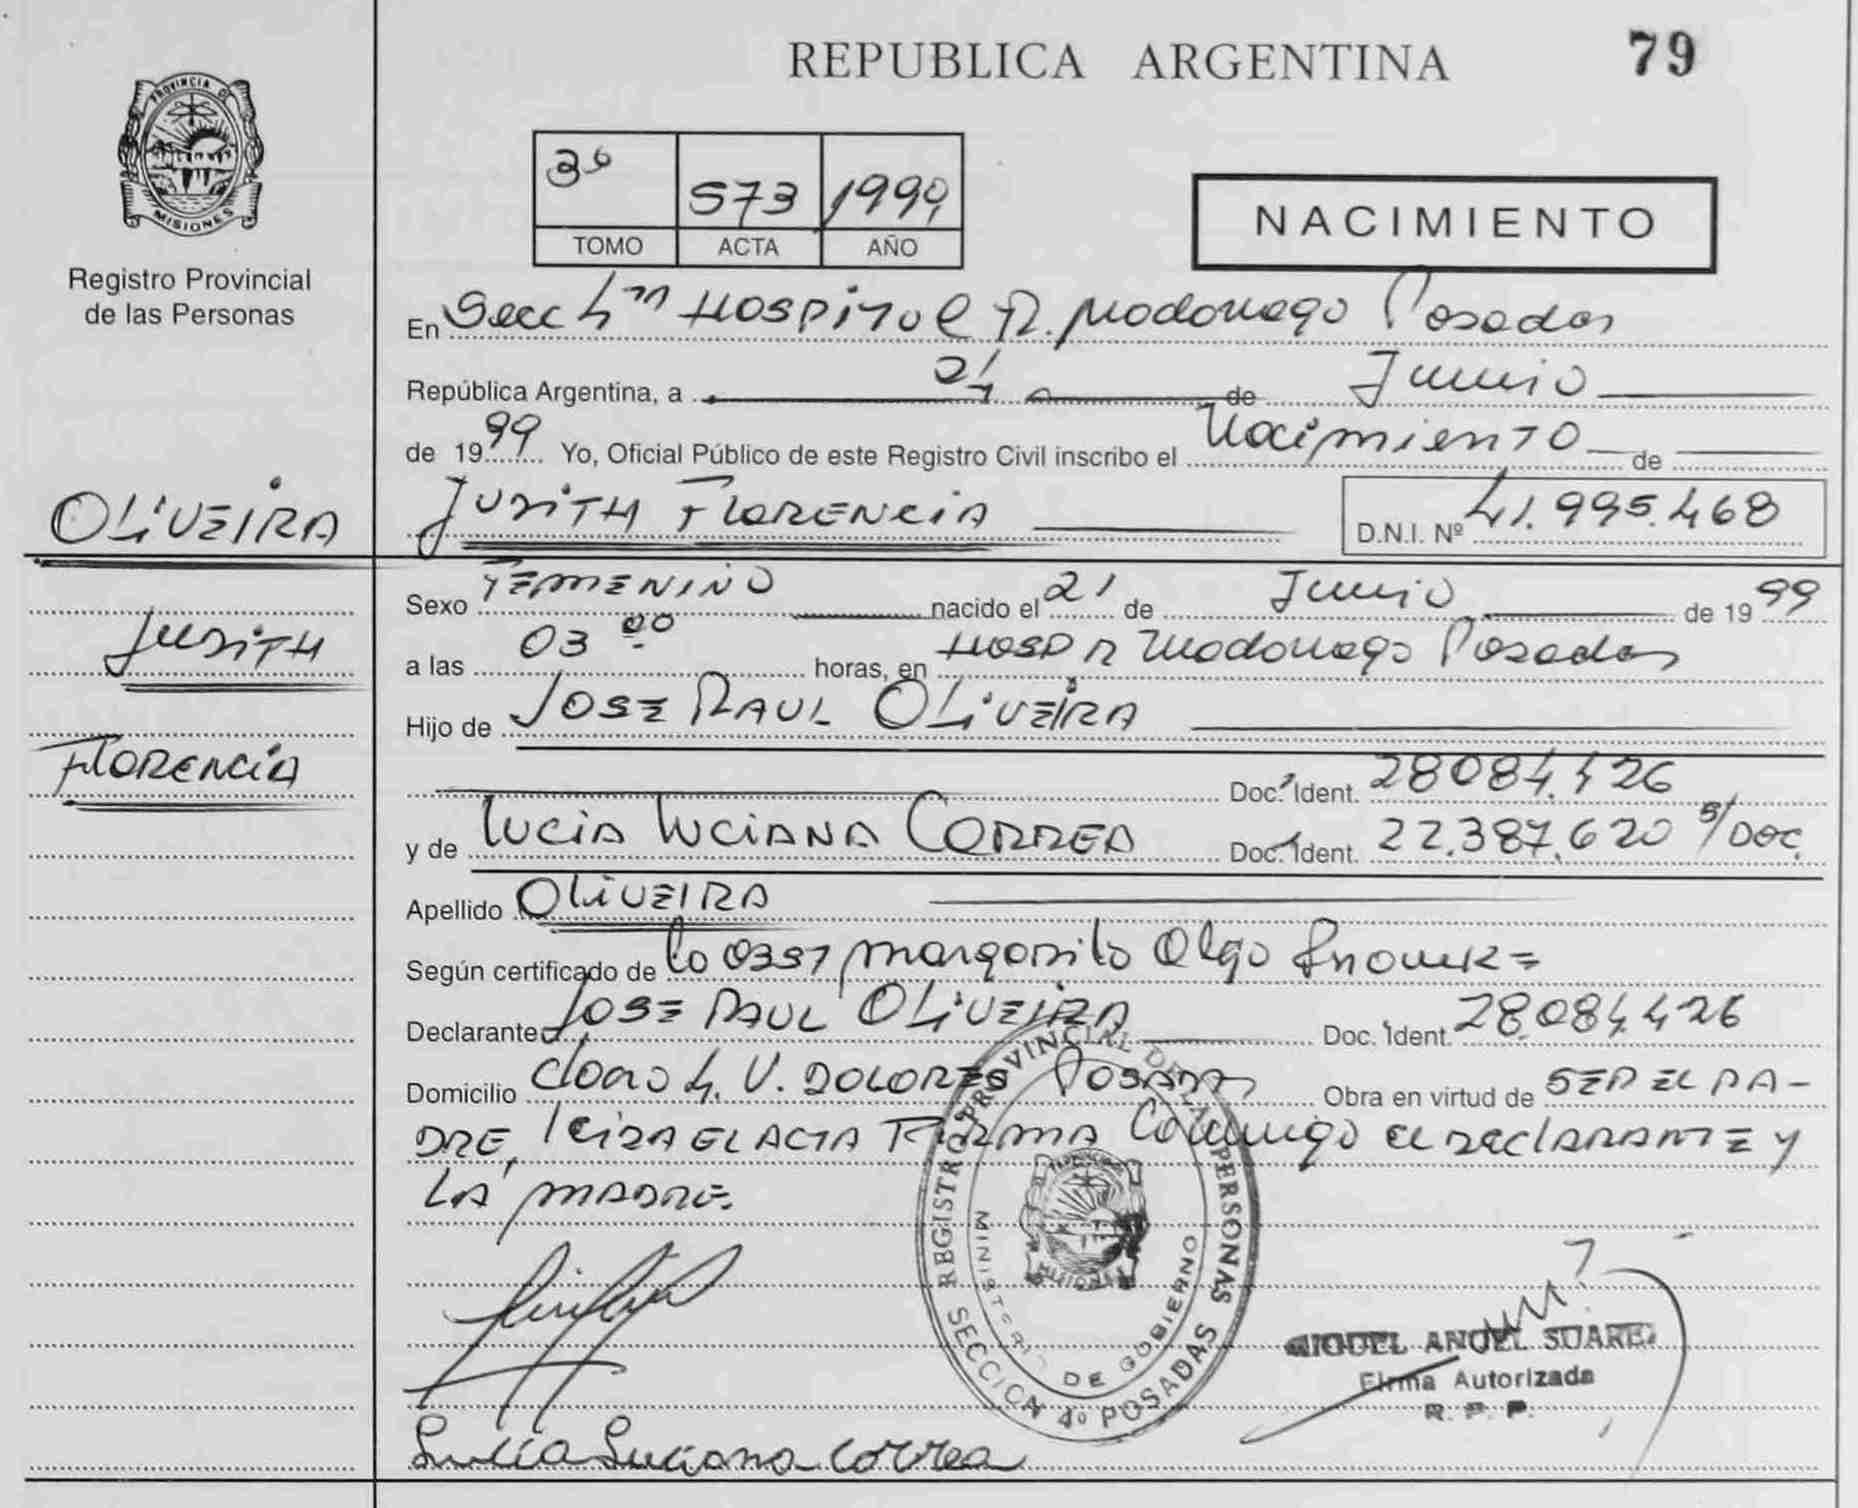 REPUBLICA ARGENTINA
79
PROVINCIA DE
MISIONES
Registro Provincial
de las Personas
3º 573 1999
TOMO ACTA AÑO
NACIMIENTO
En Secc 4ta Hospital R. Madariaga Posadas
República Argentina, a 24 de Junio
de 1999 Yo, Oficial Público de este Registro Civil inscribo el Nacimiento de
OLIVEIRA
JUDITH FLORENCIA D.N.I. Nº 41.995.468
Sexo FEMENINO nacido el 21 de Junio de 1999
JUDITH
a las 03 00 horas, en HOSP R Madariaga Posadas
Hijo de JOSE RAUL OLIVEIRA
FLORENCIA
Doc. Ident. 28084.426
y de LUCIA LUCIANA CORREA Doc. Ident. 22.387.620 S/DOC.
Apellido OLIVEIRA
Según certificado de la 0357 Margarita Olga
Declarante JOSE RAUL OLIVEIRA Doc. Ident. 28.084.426
Domicilio 4. V. DOLORES Posadas Obra en virtud de SER EL PA-
DRE, EL ACTA FIRMA Conmigo el DECLARANTE Y
LA MADRE.
REGISTRO PROVINCIAL DE LAS PERSONAS
MINISTERIO DE GOBIERNO
MISIONES
SECCION 4º POSADAS
MIGUEL ANGEL SUAREZ
Firma Autorizada
R. P. P.
Lucia Luciana Correa